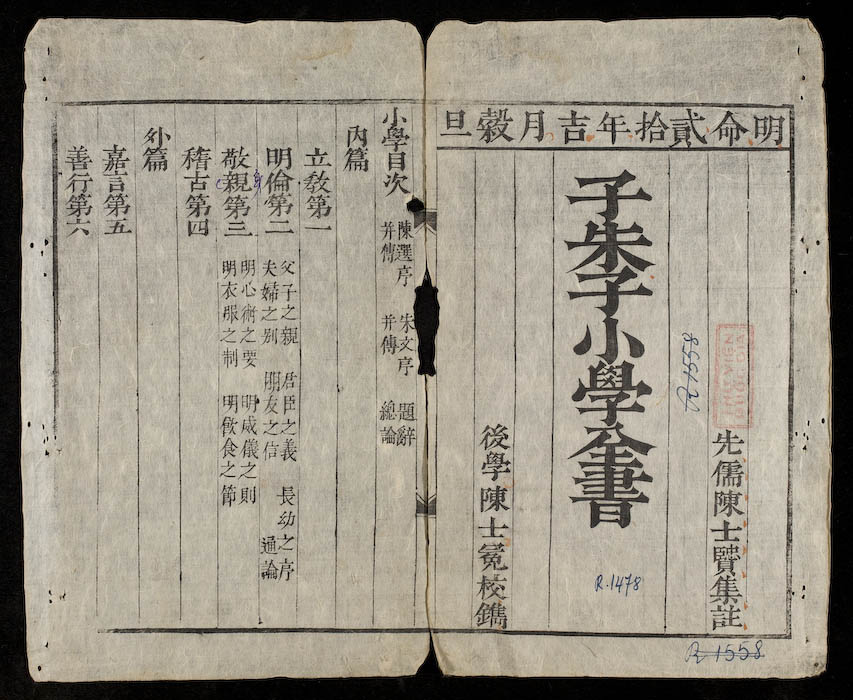 明命貳拾年吉月穀旦
先儒陳士賢集註
子朱子小學全書
後學陳士冕校鐫
R.1558
R.1478
R 1558
小學目次 陳選序并傳 朱文序并傳 題辭總論
內篇
立敎第一
明倫第二 父子之親 君臣之義 長幼之序
夫婦之别 朋友之信 通論
敬親第三 明心術之要 明威儀之則
明衣服之制 明飲食之節
身
稽古第四
外篇
嘉言第五
善行第六